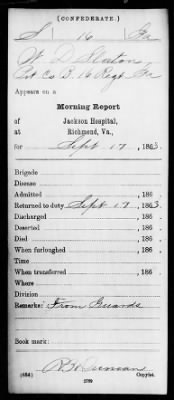 (CONFEDERATE.)
S 16 Ga
W. D. Slaton,
Pvt Co B. 16 Regt. Ga
Appears on a
Morning Report
of Jackson Hospital,
at Richmond, Va.,
for Sept 17, 1863
Brigade
Disease
Admitted , 186
Returned to duty Sept 17 , 1863.
Discharged , 186
Deserted , 186
Died , 186
When furloughed , 186
Time
When transferred , 186
Where
Division
Remarks: From Guards
Book mark:
R B Duncan
(656) Copyist.